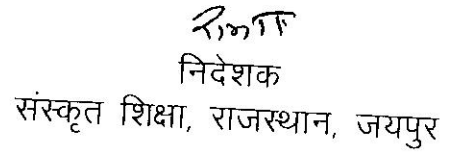 निदेशक
संस्कृत शिक्षा, राजस्थान, जयपुर